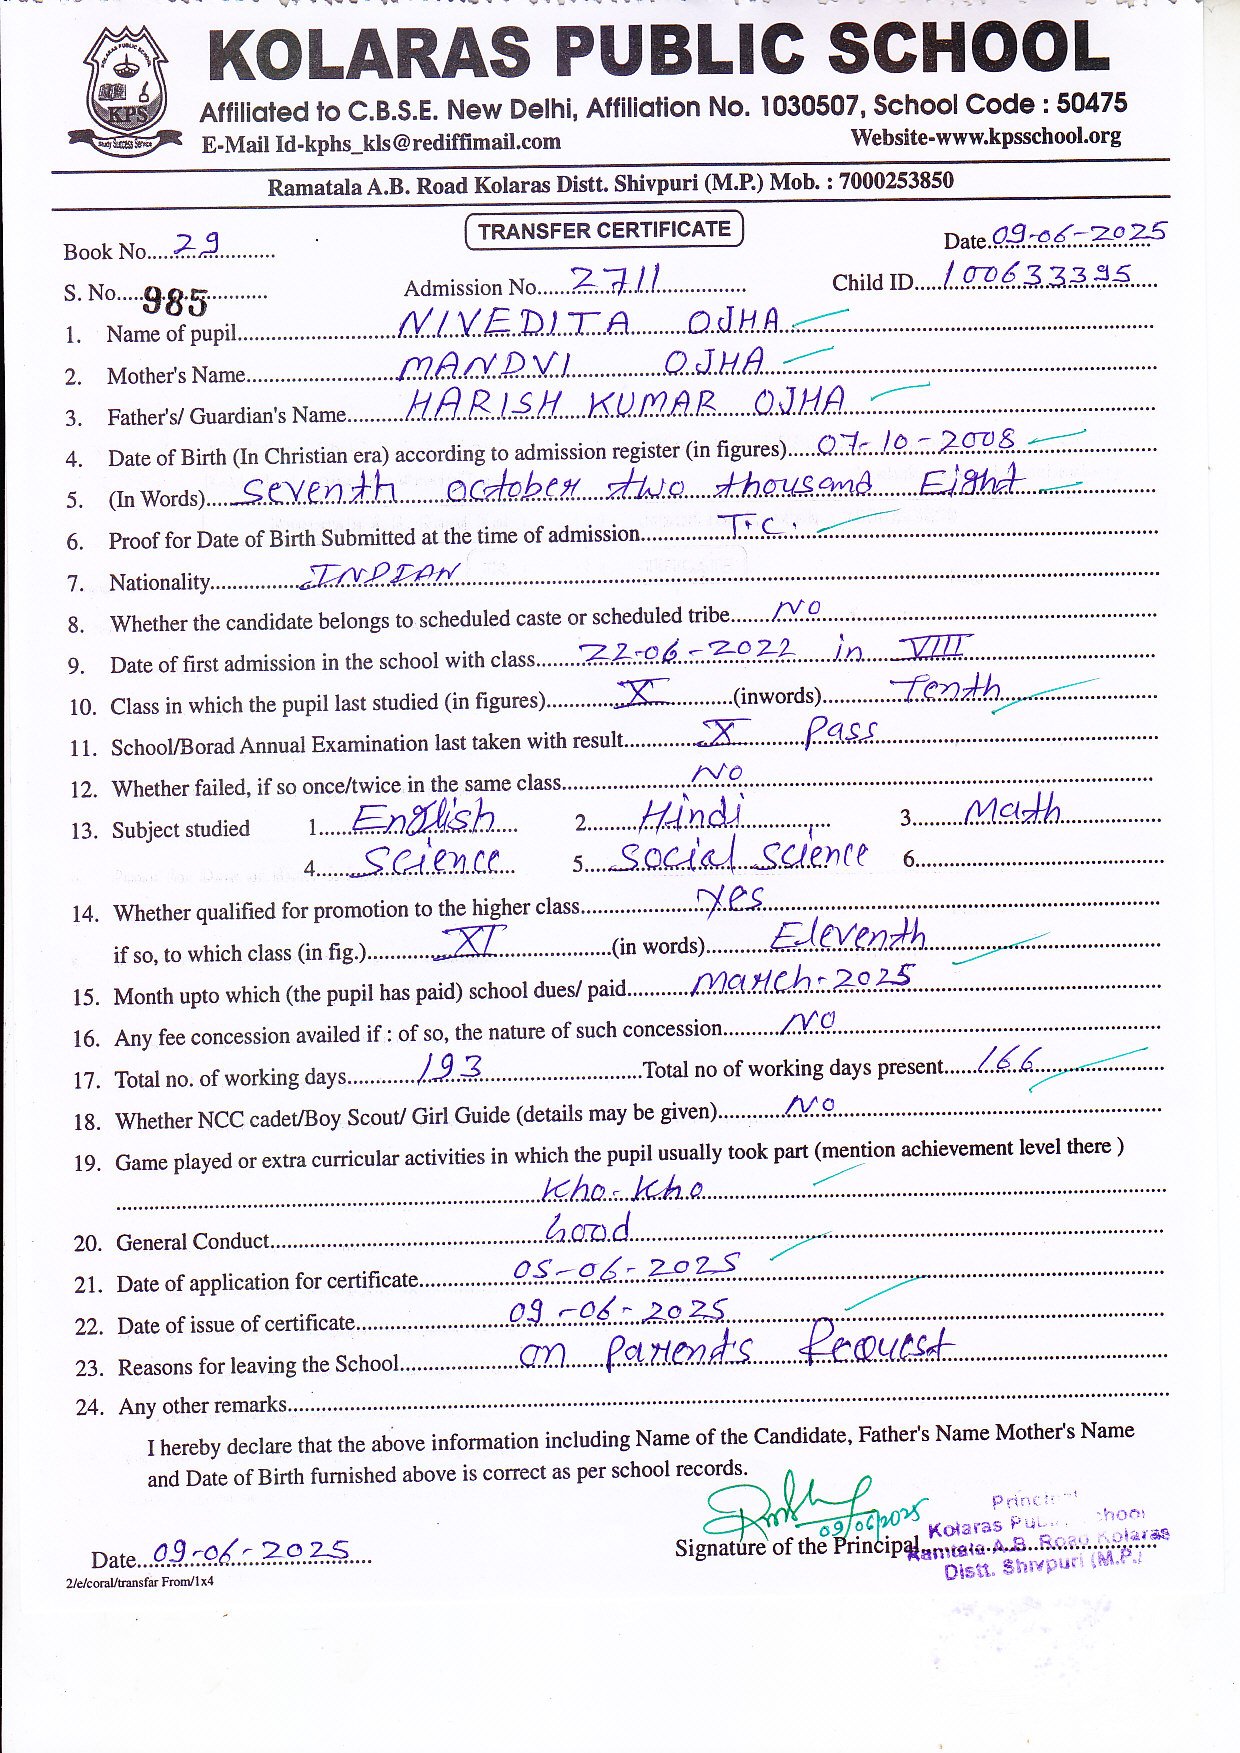 KOLARAS PUBLIC SCHOOL
Affiliated to C.B.S.E. New Delhi, Affiliation No. 1030507, School Code : 50475
E-Mail Id-kphs_kls@rediffimail.com Website-www.kpsschool.org
KOLARAS PUBLIC SCHOOL
KPS
Study Success Service
Ramatala A.B. Road Kolaras Distt. Shivpuri (M.P.) Mob. : 7000253850
TRANSFER CERTIFICATE
Book No. 29 Date. 09-06-2025
S. No. 985 Admission No. 2711 Child ID. 100633395
1. Name of pupil NIVEDITA OJHA
2. Mother's Name MANDVI OJHA
3. Father's/ Guardian's Name HARISH KUMAR OJHA
4. Date of Birth (In Christian era) according to admission register (in figures) 07-10-2008
5. (In Words) Seventh october two thousand Eight
6. Proof for Date of Birth Submitted at the time of admission T.C.
7. Nationality INDIAN
8. Whether the candidate belongs to scheduled caste or scheduled tribe NO
9. Date of first admission in the school with class 22-06-2022 in VIII
10. Class in which the pupil last studied (in figures) X (inwords) Tenth
11. School/Borad Annual Examination last taken with result X Pass
12. Whether failed, if so once/twice in the same class NO
13. Subject studied 1. English 2. Hindi 3. Math
4. Science 5. Social Science 6.
14. Whether qualified for promotion to the higher class yes
if so, to which class (in fig.) XI (in words) Eleventh
15. Month upto which (the pupil has paid) school dues/ paid March-2025
16. Any fee concession availed if : of so, the nature of such concession NO
17. Total no. of working days 193 Total no of working days present 166
18. Whether NCC cadet/Boy Scout/ Girl Guide (details may be given) NO
19. Game played or extra curricular activities in which the pupil usually took part (mention achievement level there )
Kho-Kho
20. General Conduct Good
21. Date of application for certificate 05-06-2025
22. Date of issue of certificate 09-06-2025
23. Reasons for leaving the School on Parent's Request
24. Any other remarks
I hereby declare that the above information including Name of the Candidate, Father's Name Mother's Name
and Date of Birth furnished above is correct as per school records.
09/06/2025
Date. 09-06-2025 Signature of the Principal
Kolaras
Ramtala A.B. Road Kolaras
Distt. Shivpuri (M.P.)
2/e/coral/transfar From/1x4